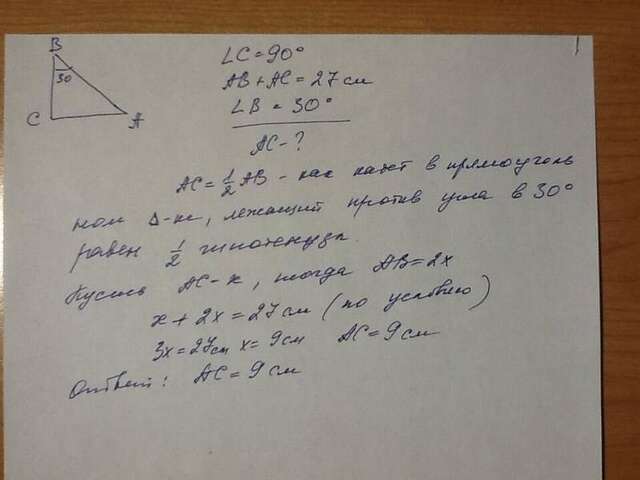 B
30
C
A
∠C = 90°
AB + AC = 27 см
∠B = 30°
AC - ?
AC = 1/2 AB - как катет в прямоуголь
ном Δ-ке, лежащий против угла в 30°
равен 1/2 гипотенузы.
Пусть AC - x, тогда AB = 2x
x + 2x = 27 см (по условию)
3x = 27 см x = 9 см AC = 9 см
Ответ: AC = 9 см